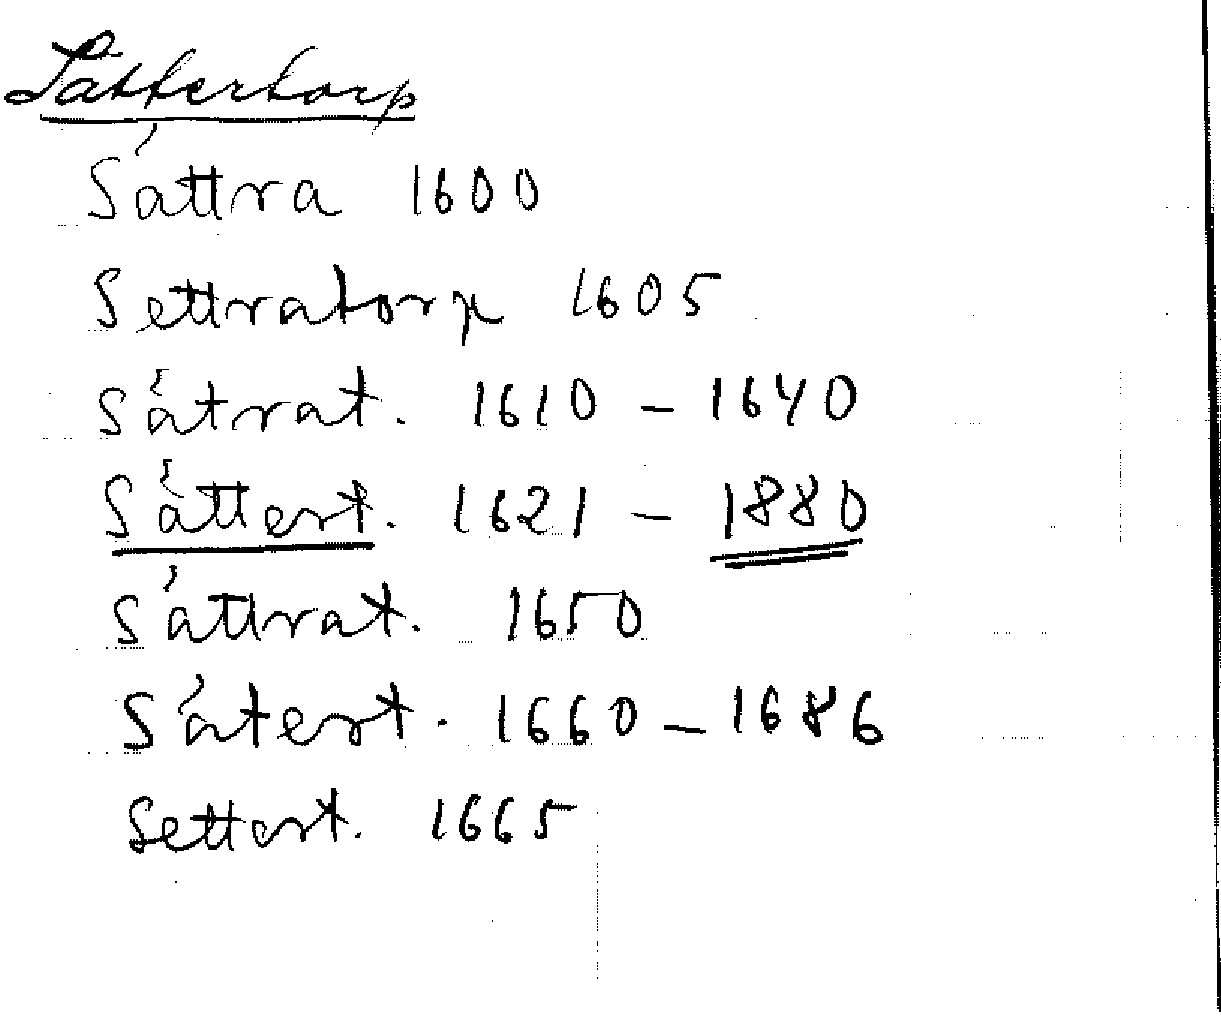 Sättertorp
Sättra 1600
Settratorp 1605
Sätrat. 1610 – 1640
Sättert. 1621 – 1880
Sättrat. 1650
Sätert. 1660 – 1686
Settert. 1665